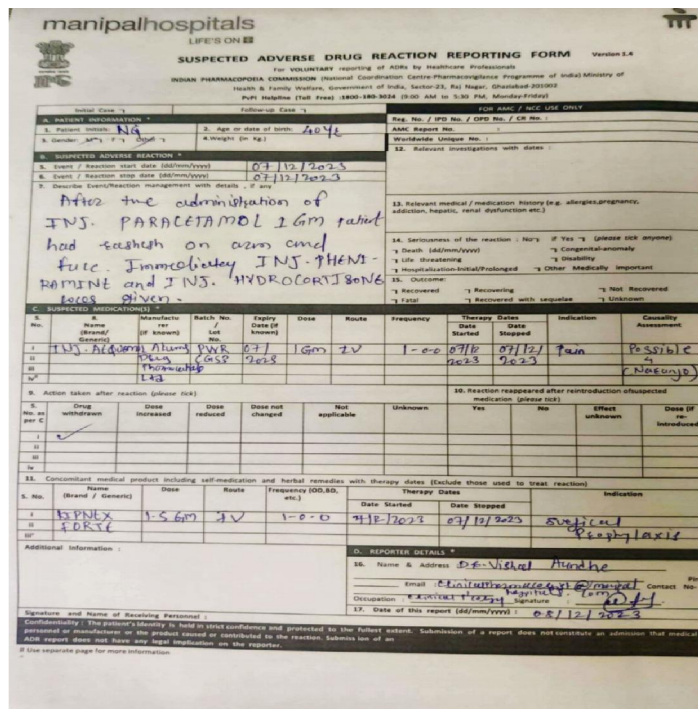 manipalhospitals
LIFE'S ON
SUSPECTED ADVERSE DRUG REACTION REPORTING FORM Version 1.4
For VOLUNTARY reporting of ADRs by Healthcare Professionals
INDIAN PHARMACOPOEIA COMMISSION (National Coordination Centre-Pharmacovigilance Programme of India) Ministry of
Health & Family Welfare, Government of India, Sector-23, Raj Nagar, Ghaziabad-201002
PvPI Helpline (Toll Free) :1800-180-3024 (9:00 AM to 5:30 PM, Monday-Friday)
Initial Case Follow-up Case
FOR AMC / NCC USE ONLY
A. PATIENT INFORMATION *
Reg. No. / IPD No. / OPD No. / CR No. :
1. Patient Initials: NG 2. Age or date of birth: 40
AMC Report No. :
3. Gender: M F Other 4.Weight (in Kg.)
Worldwide Unique No. :
B. SUSPECTED ADVERSE REACTION *
12. Relevant investigations with dates :
5. Event / Reaction start date (dd/mm/yyyy) 07/12/2023
6. Event / Reaction stop date (dd/mm/yyyy) 07/12/2023
7. Describe Event/Reaction management with details , if any
After the administration of
INJ. PARACETAMOL 1GM patient
had on arm and
INJ. PHENI-
RAMINE and INJ. HYDROCORTISONE
given.
13. Relevant medical / medication history (e.g. allergies,pregnancy,
addiction, hepatic, renal dysfunction etc.)
14. Seriousness of the reaction : No If Yes (please tick anyone)
Death (dd/mm/yyyy) Congenital-anomaly
Life threatening Disability
Hospitalisation-Initial/Prolonged Other Medically important
15. Outcome:
Recovered Recovering Not Recovered
Fatal Recovered with sequelae Unknown
C. SUSPECTED MEDICATION(S) *
S. No. 8. Name (Brand/ Generic) Manufacturer (if known) Batch No. / Lot No. Expiry Date (if known) Dose Route Frequency Therapy Dates Date Started Date Stopped Indication Causality Assessment
i INJ. 07/ 2025 1Gm IV 1-0-0 07/12 2023 07/12/ 2023 Pain Possible
ii
iii (Naranjo)
iv
9. Action taken after reaction (please tick)
10. Reaction reappeared after reintroduction ofsuspected
medication (please tick)
S. No. as per C Drug withdrawn Dose increased Dose reduced Dose not changed Not applicable Unknown Yes No Effect unknown Dose (if re-introduced
i ✓
ii
iii
iv
11. Concomitant medical product including self-medication and herbal remedies with therapy dates (Exclude those used to treat reaction)
S. No. Name (Brand / Generic) Dose Route Frequency (OD,BD, etc.) Therapy Dates Date Started Date Stopped Indication
i 1.5 Gm IV 1-0-0 07/12/2023 Surgical
ii FORTE Prophylaxis
iii
Additional Information :
D. REPORTER DETAILS *
16. Name & Address Dr. Vishal
Email : Contact No-
Occupation : Signature :
17. Date of this report (dd/mm/yyyy) : 08/12/2023
Signature and Name of Receiving Personnel :
Confidentiality : The patient's identity is held in strict confidence and protected to the fullest extent. Submission of a report does not constitute an admission that medical
personnel or manufacturer or the product caused or contributed to the reaction. Submission of an
ADR report does not have any legal implication on the reporter.
# Use separate page for more information